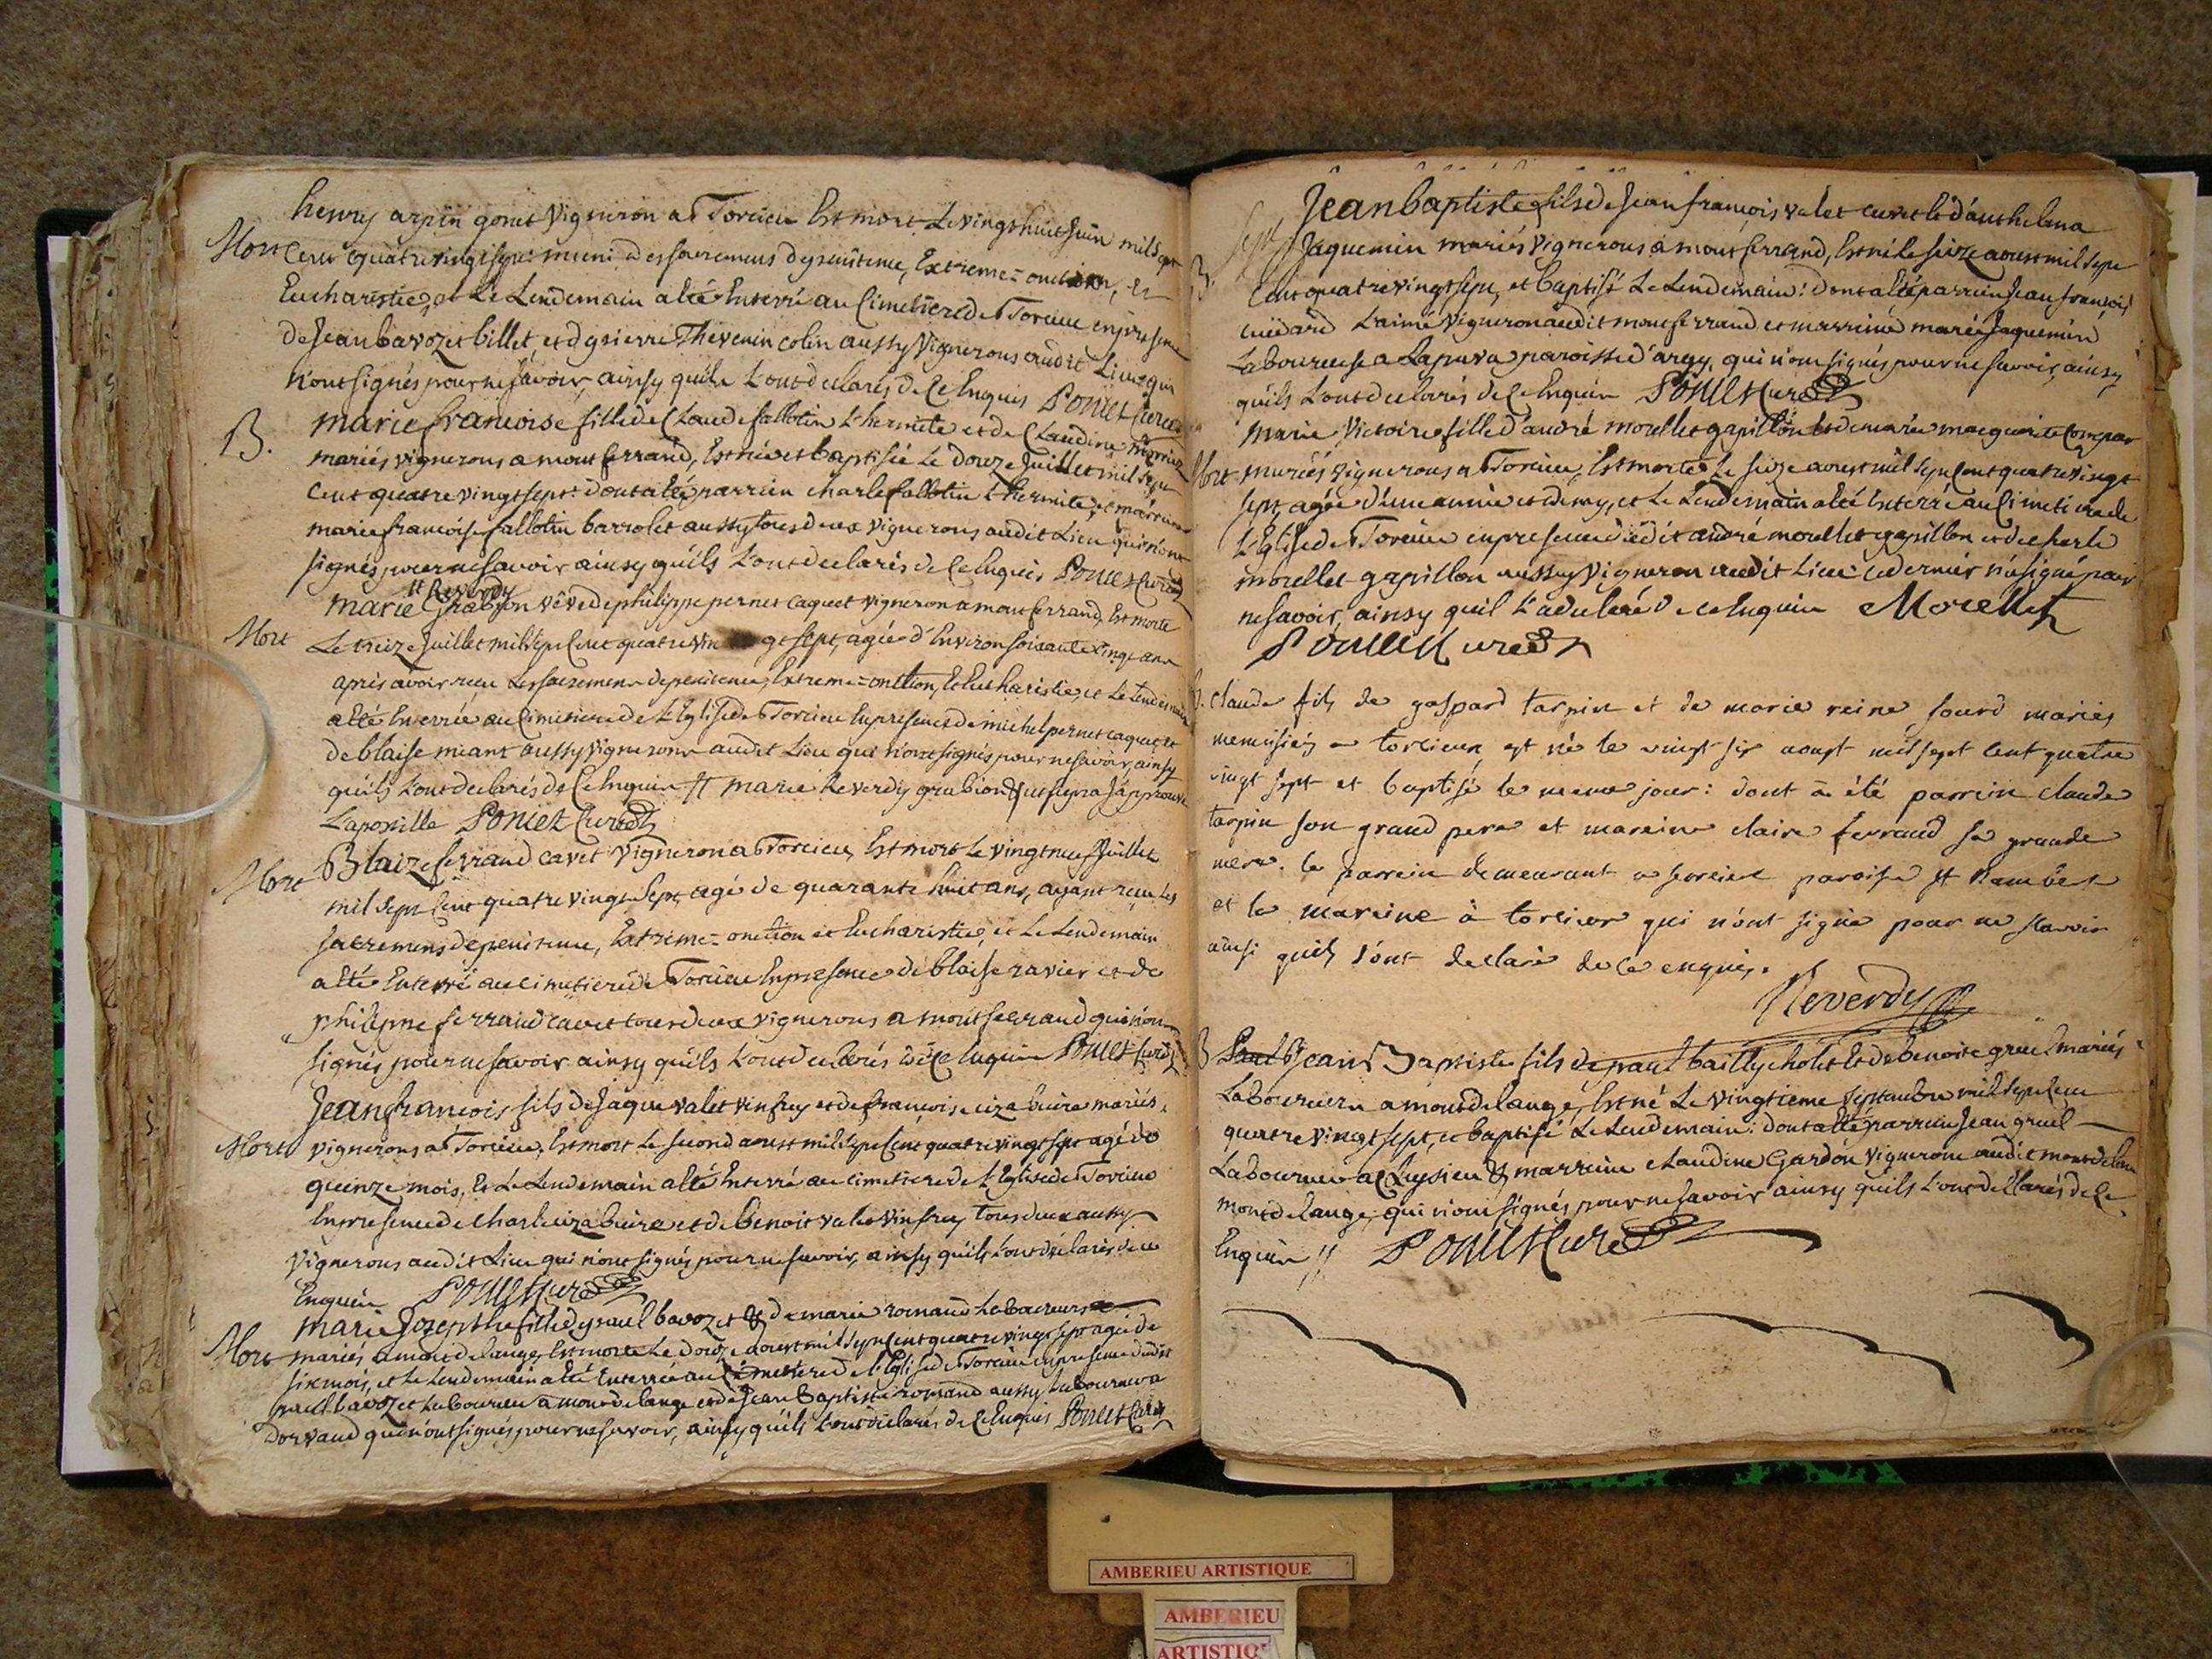 henry arpin gonet vigneron a Torcieu Est mort Le vingt huit Juin mil sept
Mort Cent quatre vingt sept: muni des sacremens de penitence, Extreme=onction, Et
Eucharistie, et Le Lendemain a été Enterré au Cimetiere de Torcieu en presence
de Jean bavozet billet et de pierre Thevenin colin aussy Vignerons audit Lieu qui
n'ont signés pour ne savoir, ainsy qu'ils L'ont declarés de Ce Enquis Poncet Curé
B. marie francoise fille de Claude fallotin L'hermite et de Claudine
mariés vignerons a mont ferrand, Est née et baptisée Le douze Juillet mil sept
Cent quatre vingt sept: dont a été parrien charle fallotin L'hermite, et marrine
marie francoise fallotin barrolet aussy tous deux vignerons audit Lieu qui n'ont
signés pour ne savoir ainsy qu'ils L'ont declarés de Ce Enquis Poncet Curé
# Reverdy
marie Grabion vêve de philippe pernet caquet vigneron a mont ferrand, Est morte
Mort Le treize Juillet mil sept Cent quatre vin gt sept, agée d'Environ soixante Cinq ans
après avoir recu Les sacremens de penitence, Extreme=onction, Et Eucharistie, et Le Lendemain
a été Enterrée au Cimetiere de L'Eglise de Torcieu En presence de michel pernet caquet et
de blaise miant aussy vignerons audit Lieu qui n'ont signés pour ne savoir, ainsy
qu'ils L'ont declarés de Ce Enquis # marie Reverdy grabion J'approuve
L'apostille Poncet Curé
Mort Blaize ferrand cavet Vigneron a Torcieu, Est mort Le vingt neuf Juillet
mil sept Cent quatre vingt sept, agé de quarante huit ans, ayant reçu Les
sacremens de penitence, Extreme=onction et Eucharistie, et Le Lendemain
a été Enterré au cimetiere de Torcieu En presence de blaise ravier et de
philippe ferrand cavet tous deux vignerons a mont ferrand qui n'ont
signés pour ne savoir ainsy qu'ils L'ont declarés de Ce Enquis Poncet Curé
Jean francois fils de Jaque valet vinfrey et de francoise mariés,
Mort vignerons a Torcieu, Est mort Le second aoust mil sept Cent quatre vingt sept agé de
quinze mois, Et Le Lendemain a été Enterré au cimetiere de L'Eglise de Torcieu
En presence de Charle et de benoit valet vinfrey tous deux aussy
Vignerons audit Lieu qui n'ont signés pour ne savoir, ainsy qu'ils L'ont declarés de ce
Enquis Poncet Curé
marie Josepthe fille de paul bavozet & de marie romand Laboureurs
Mort mariés a mont de lange, Est morte Le douze aoust mil sept Cent quatre vingt sept agée de
six mois, et Le Lendemain a été Enterrée au Cimetiere de L'Eglise de Torcieu en presence dudit
paul bavozet Laboureur a mont de lange et de Jean Baptiste romand aussy Laboureur a
Dorvand qui n'ont signés pour ne savoir, ainsy qu'ils L'ont declarés de Ce Enquis Poncet Curé
Jean baptiste fils de Jean francois valet cuvet et d'anthelma
Jaquemin mariés vignerons a mont ferrand, Est né Le seize aoust mil sept
B. Cent quatre vingt sept, et baptisé Le Lendemain: dont a été parrien Jean francois
L'aimé vigneron audit mont ferrand et marrine marie Jaquemin
Laboureuse a paroisse d'argy, qui n'ont signés pour ne savoir, ainsy
qu'ils L'ont declarés de Ce Enquis Poncet Curé
Marie Victoire fille d'andré morellet gapillon et de marie marguerite
Mort mariés vignerons a Torcieu, Est morte Le seize aoust mil sept Cent quatre vingt
sept, agée d'une année et demy, et Le Lendemain a été Enterrée au Cimetiere de
L'Eglise de Torcieu en presence dudit andré morellet gapillon et de charle
morellet gapillon aussy Vigneron audit Lieu: ce dernier n'a signé pour
ne savoir, ainsy quil L'a declaré de ce Enquis Morellet
Poncet Curé
B. Claude fils de gaspard tarpin et de marie reine sourd mariés
menusiés a torcieux est né le vingt six aoust mil sept cent quatre
vingt sept et baptisé le meme jour: dont a été parrein claude
tarpin son grand pere et mareine claire ferrand sa grande
mere. le parrein demeurant a paroisse st Rambert
et la mareine à torcieu qui n'ont signé pour ne scavoir
ainsi quils l'ont declaré de ce enquis.
Reverdy
B Paul Jean Baptiste fils de paul bailly cholet et de benoite gruel mariés
Laboureurs a mont de lange, Est né Le vingtieme septembre mil sept Cent
quatre vingt sept, et baptisé Le Lendemain: dont a été parrien Jean gruel
Laboureur a Cleysieu & marreine Claudine Gardon Vigneronne audit
mont de lange; qui n'ont signés pour ne savoir ainsy qu'ils L'ont declarés de Ce
Enquis // Poncet Curé
AMBERIEU ARTISTIQUE
AMBERIEU
ARTISTIQ